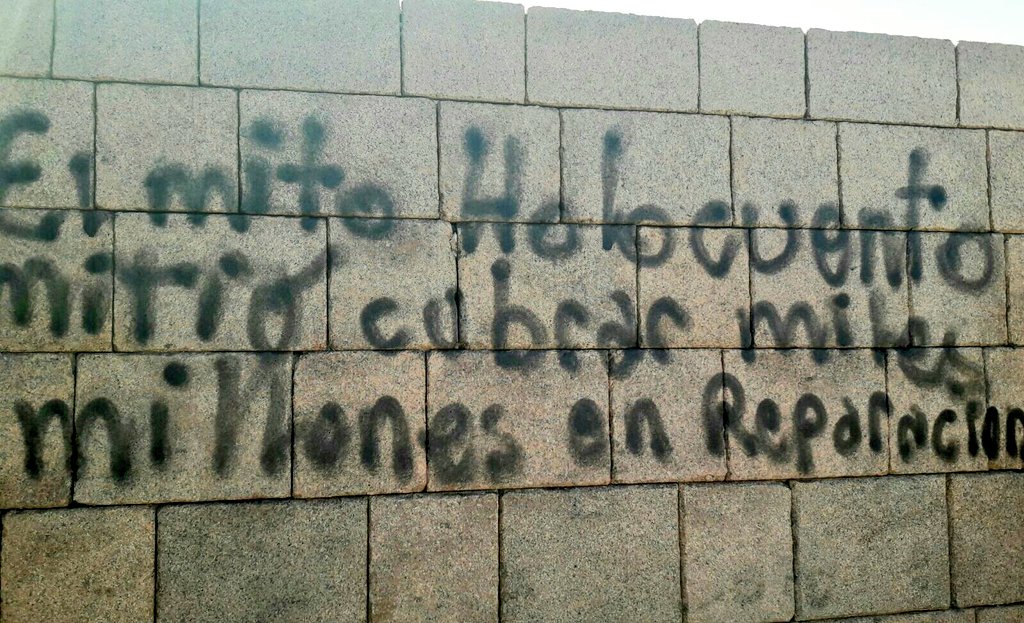 El mito Holocuento
mitió cubrar miles
millones en Reparación